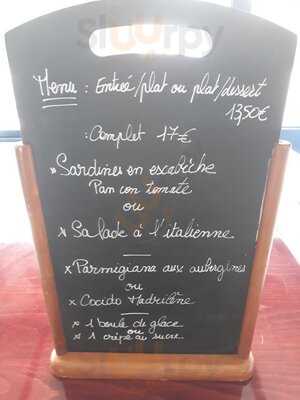 Sluurpy
Menu : Entrée/plat ou plat/dessert
13,50€
: Complet 17€
* Sardines en escabèche
Pan con tomate
ou
* Salade à l'italienne
x Parmigiana aux aubergines
ou
x Cocido Madrilène
* 1 boule de glace
ou
* 1 crêpe au sucre